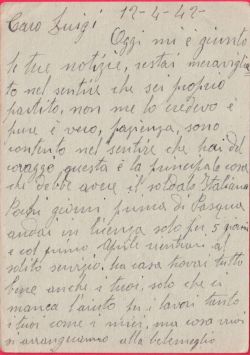 Caro Luigi 12-4-42-
Oggi mi è giunto
le tue notizie, restai meraviglia
to nel sentire che sei proprio
partito, non me lo credevo è
pure è vero, pazienza, sono
contento nel sentire che hai del
coraggio questa è la principale cosa
che debbe avere il soldato Italiano
Pochi giorni prima di Pasqua
andai in licenza solo per 5 giorni
e col primo Aprile rientrai al
solito servizio, a casa trovai tutto
bene anche i tuoi, solo che ci
manca l'aiuto per i lavori tanto
i tuoi come i miei, ma cosa vuoi
si arrangeranno alla belemeglio